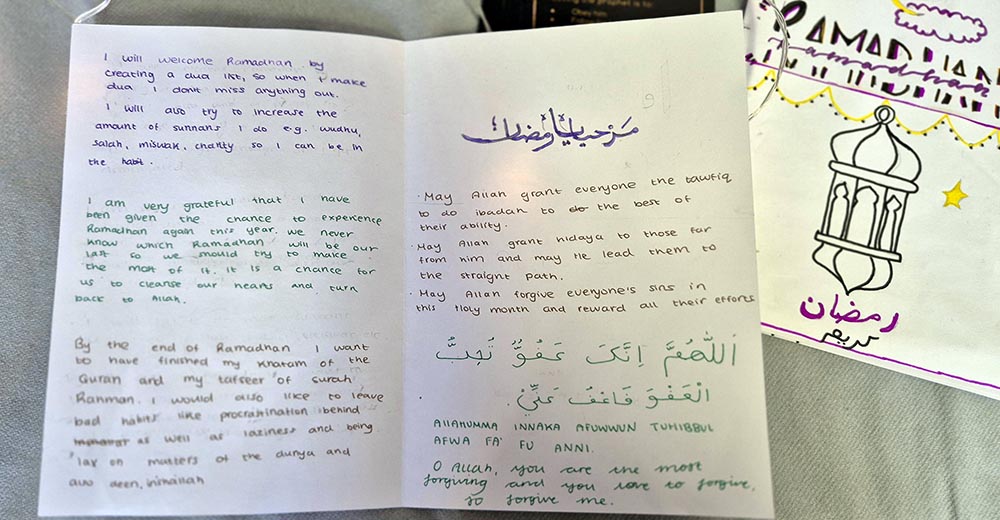 I will welcome Ramadhan by
creating a dua list, so when I make
dua I dont miss anything out.
I will also try to increase the
amount of sunnans I do e.g. wudhu,
salah, miswak, charity so I can be in
the habit.
I am very grateful that I have
been given the chance to experience
Ramadhan again this year. We never
know which Ramadhan will be our
last so we should try to make
the most of it. It is a chance for
us to cleanse our hearts and turn
back to Allah.
By the end of Ramadhan I want
to have finished my Khatam of the
Quran and my tafseer of surah
Rahman. I would also like to leave
bad habits like procrastination behind
as well as laziness and being
lax on matters of the dunya and
also deen, inshallah
مرحبا يا رمضان
· May Allah grant everyone the tawfiq
to do ibadah to do the best of
their ability.
· May Allah grant hidaya to those far
from him and may He lead them to
the straight path.
· May Allah forgive everyone's sins in
this Holy month and reward all their efforts
اَللّٰهُمَّ اِنَّکَ عَفُوٌّ تُحِبُّ
الْعَفْوَ فَاعْفُ عَنِّيْ.
Allahumma innaka afuwwun tuhibbul
afwa fa' fu anni.
O Allah, you are the most
forgiving and you love to forgive,
so forgive me.
the prophet is to:
Ramadhan
رمضان
كريم